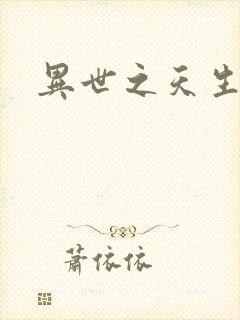 異世之天生
蕭依依